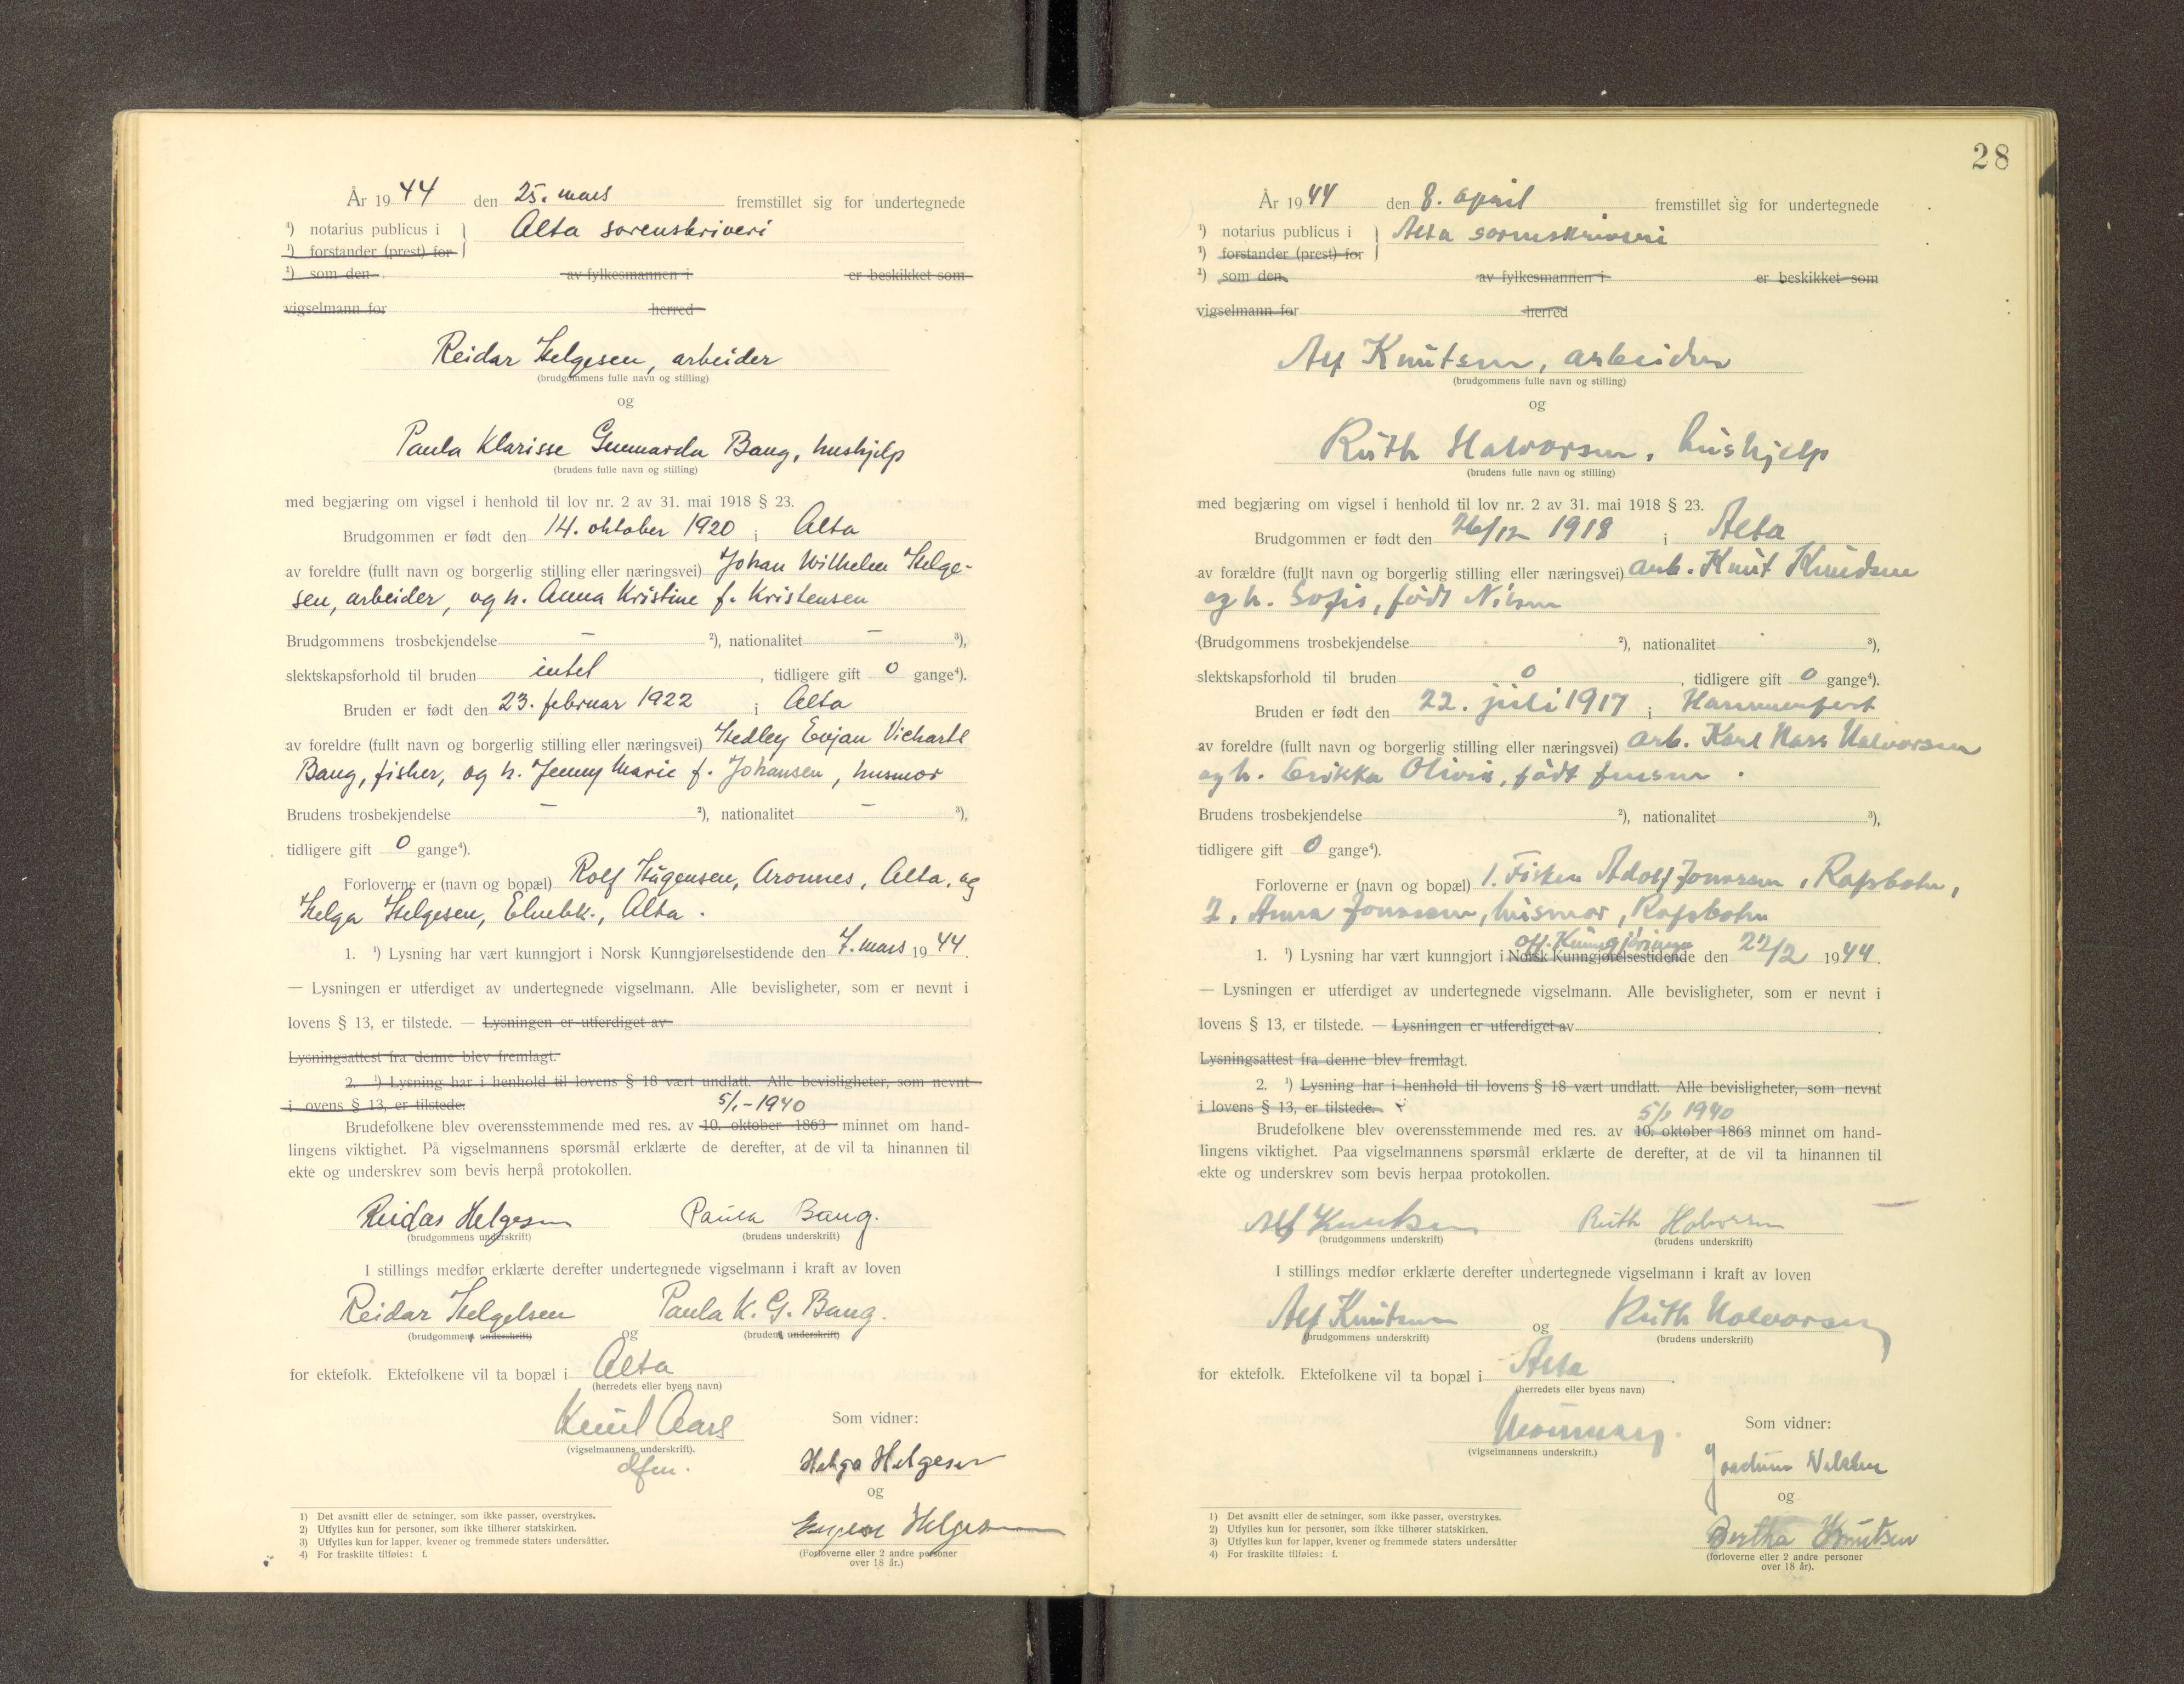 År 1944 den 25. mars fremstillet sig for undertegnede
¹) notarius publicus i } Alta sorenskriveri
¹) forstander (prest) for
¹) som den av fylkesmannen i er beskikket som
vigselmann for herred
Reidar Helgesen, arbeider
(brudgommens fulle navn og stilling)
og
Paula Klarisse Gunnarda Bang, hushjelp
(brudens fulle navn og stilling)
med begjæring om vigsel i henhold til lov nr. 2 av 31. mai 1918 § 23.
Brudgommen er født den 14. oktober 1920 i Alta
av foreldre (fullt navn og borgerlig stilling eller næringsvei) Johan Wilhelm Helge-
sen, arbeider, og h. Anna Kristine f. Kristensen
Brudgommens trosbekjendelse — ²), nationalitet — ³),
slektskapsforhold til bruden intet, tidligere gift 0 gange⁴).
Bruden er født den 23. februar 1922 i Alta
av foreldre (fullt navn og borgerlig stilling eller næringsvei) Hedley Evjan Vicharht
Bang, fisher, og h. Jenny Marie f. Johansen, husmor
Brudens trosbekjendelse — ²), nationalitet — ³),
tidligere gift 0 gange⁴).
Forloverne er (navn og bopæl) Rolf Hågensen, Aronnes, Alta, og
Helga Helgesen, Elvebk., Alta.
1. ¹) Lysning har vært kunngjort i Norsk Kunngjørelsestidende den 7. mars 1944.
— Lysningen er utferdiget av undertegnede vigselmann. Alle bevisligheter, som er nevnt i
lovens § 13, er tilstede. — Lysningen er utferdiget av
Lysningsattest fra denne blev fremlagt.
2. ¹) Lysning har i henhold til lovens § 18 vært undlatt. Alle bevisligheter, som nevnt
i ovens § 13, er tilstede.
5/1-1940
Brudefolkene blev overensstemmende med res. av 10. oktober 1863 minnet om hand-
lingens viktighet. På vigselmannens spørsmål erklærte de derefter, at de vil ta hinannen til
ekte og underskrev som bevis herpå protokollen.
Reidar Helgesen Paula Bang.
(brudgommens underskrift) (brudens underskrift)
I stillings medfør erklærte derefter undertegnede vigselmann i kraft av loven
Reidar Helgelsen Paula K. G. Bang.
(brudgommens underskrift) og (brudens underskrift)
for ektefolk. Ektefolkene vil ta bopæl i Alta
(herredets eller byens navn)
Knut Aars Som vidner:
(vigselmannens underskrift).
dfm. Helga Helgesen
og
Helgesen
(Forloverne eller 2 andre personer
over 18 år.)
1) Det avsnitt eller de setninger, som ikke passer, overstrykes.
2) Utfylles kun for personer, som ikke tilhører statskirken.
3) Utfylles kun for lapper, kvener og fremmede staters undersåtter.
4) For fraskilte tilføies: f.
28
År 1944 den 8. april fremstillet sig for undertegnede
¹) notarius publicus i } Alta sorenskriveri
¹) forstander (prest) for
¹) som den av fylkesmannen i er beskikket som
vigselmann for herred
Alf Knutsen, arbeider
(brudgommens fulle navn og stilling)
og
Ruth Halvorsen, hushjelp
(brudens fulle navn og stilling)
med begjæring om vigsel i henhold til lov nr. 2 av 31. mai 1918 § 23.
Brudgommen er født den 26/12 1918 i Alta
av forældre (fullt navn og borgerlig stilling eller næringsvei) arb. Knut Knudsen
og h. Sofie, født Nilsen
(Brudgommens trosbekjendelse ²), nationalitet ³),
slektskapsforhold til bruden 0, tidligere gift 0 gange⁴).
Bruden er født den 22. juli 1917 i Hammerfest
av foreldre (fullt navn og borgerlig stilling eller næringsvei) arb. Karl Hass Halvorsen
og h. Erikka Olivie, født Jensen.
Brudens trosbekjendelse ²), nationalitet ³),
tidligere gift 0 gange⁴).
Forloverne er (navn og bopæl) 1. Fisker Adolf Jonassen, Rafsbotn,
2. Anna Jonassen, husmor, Rafsbotn
off. Kunngjøringer
1. ¹) Lysning har vært kunngjort i Norsk Kunngjørelsestidende den 22/2 1944.
— Lysningen er utferdiget av undertegnede vigselmann. Alle bevisligheter, som er nevnt i
lovens § 13, er tilstede. — Lysningen er utferdiget av
Lysningsattest fra denne blev fremlagt.
2. ¹) Lysning har i henhold til lovens § 18 vært undlatt. Alle bevisligheter, som nevnt
i lovens § 13, er tilstede.
5/1 1940
Brudefolkene blev overensstemmende med res. av 10. oktober 1863 minnet om hand-
lingens viktighet. Paa vigselmannens spørsmål erklærte de derefter, at de vil ta hinannen til
ekte og underskrev som bevis herpaa protokollen.
Alf Knutsen Ruth Halvorsen
(brudgommens underskrift) (brudens underskrift)
I stillings medfør erklærte derefter undertegnede vigselmann i kraft av loven
Alf Knutsen og Ruth Halvorsen
(brudgommens underskrift) (brudens underskrift)
for ektefolk. Ektefolkene vil ta bopæl i Alta.
(herredets eller byens navn)
Som vidner:
(vigselmannens underskrift.)
og
Bertha Knutsen
(forloverne eller 2 andre personer
over 18 år).
1) Det avsnitt eller de setninger, som ikke passer, overstrykes.
2) Utfylles kun for personer, som ikke tilhører statskirken.
3) Utfylles kun for lapper, kvener og fremmede staters undersåtter
4) For fraskilte tilføies: f.